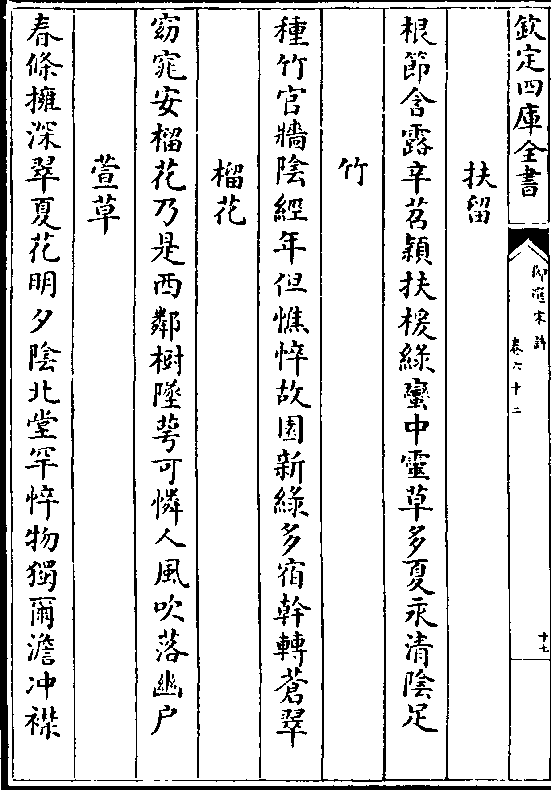 欽定四庫全書
御選宋詩
卷六十二
十七
扶留
根節含露辛苕穎扶楥綠蠻中靈草多夏永清陰足
竹
種竹官牆陰經年但憔悴故園新綠多宿幹轉蒼翠
榴花
窈窕安榴花乃是西鄰樹墜萼可憐人風吹落幽户
萱草
春條擁深翠夏花明夕陰北堂罕悴物獨爾澹冲襟